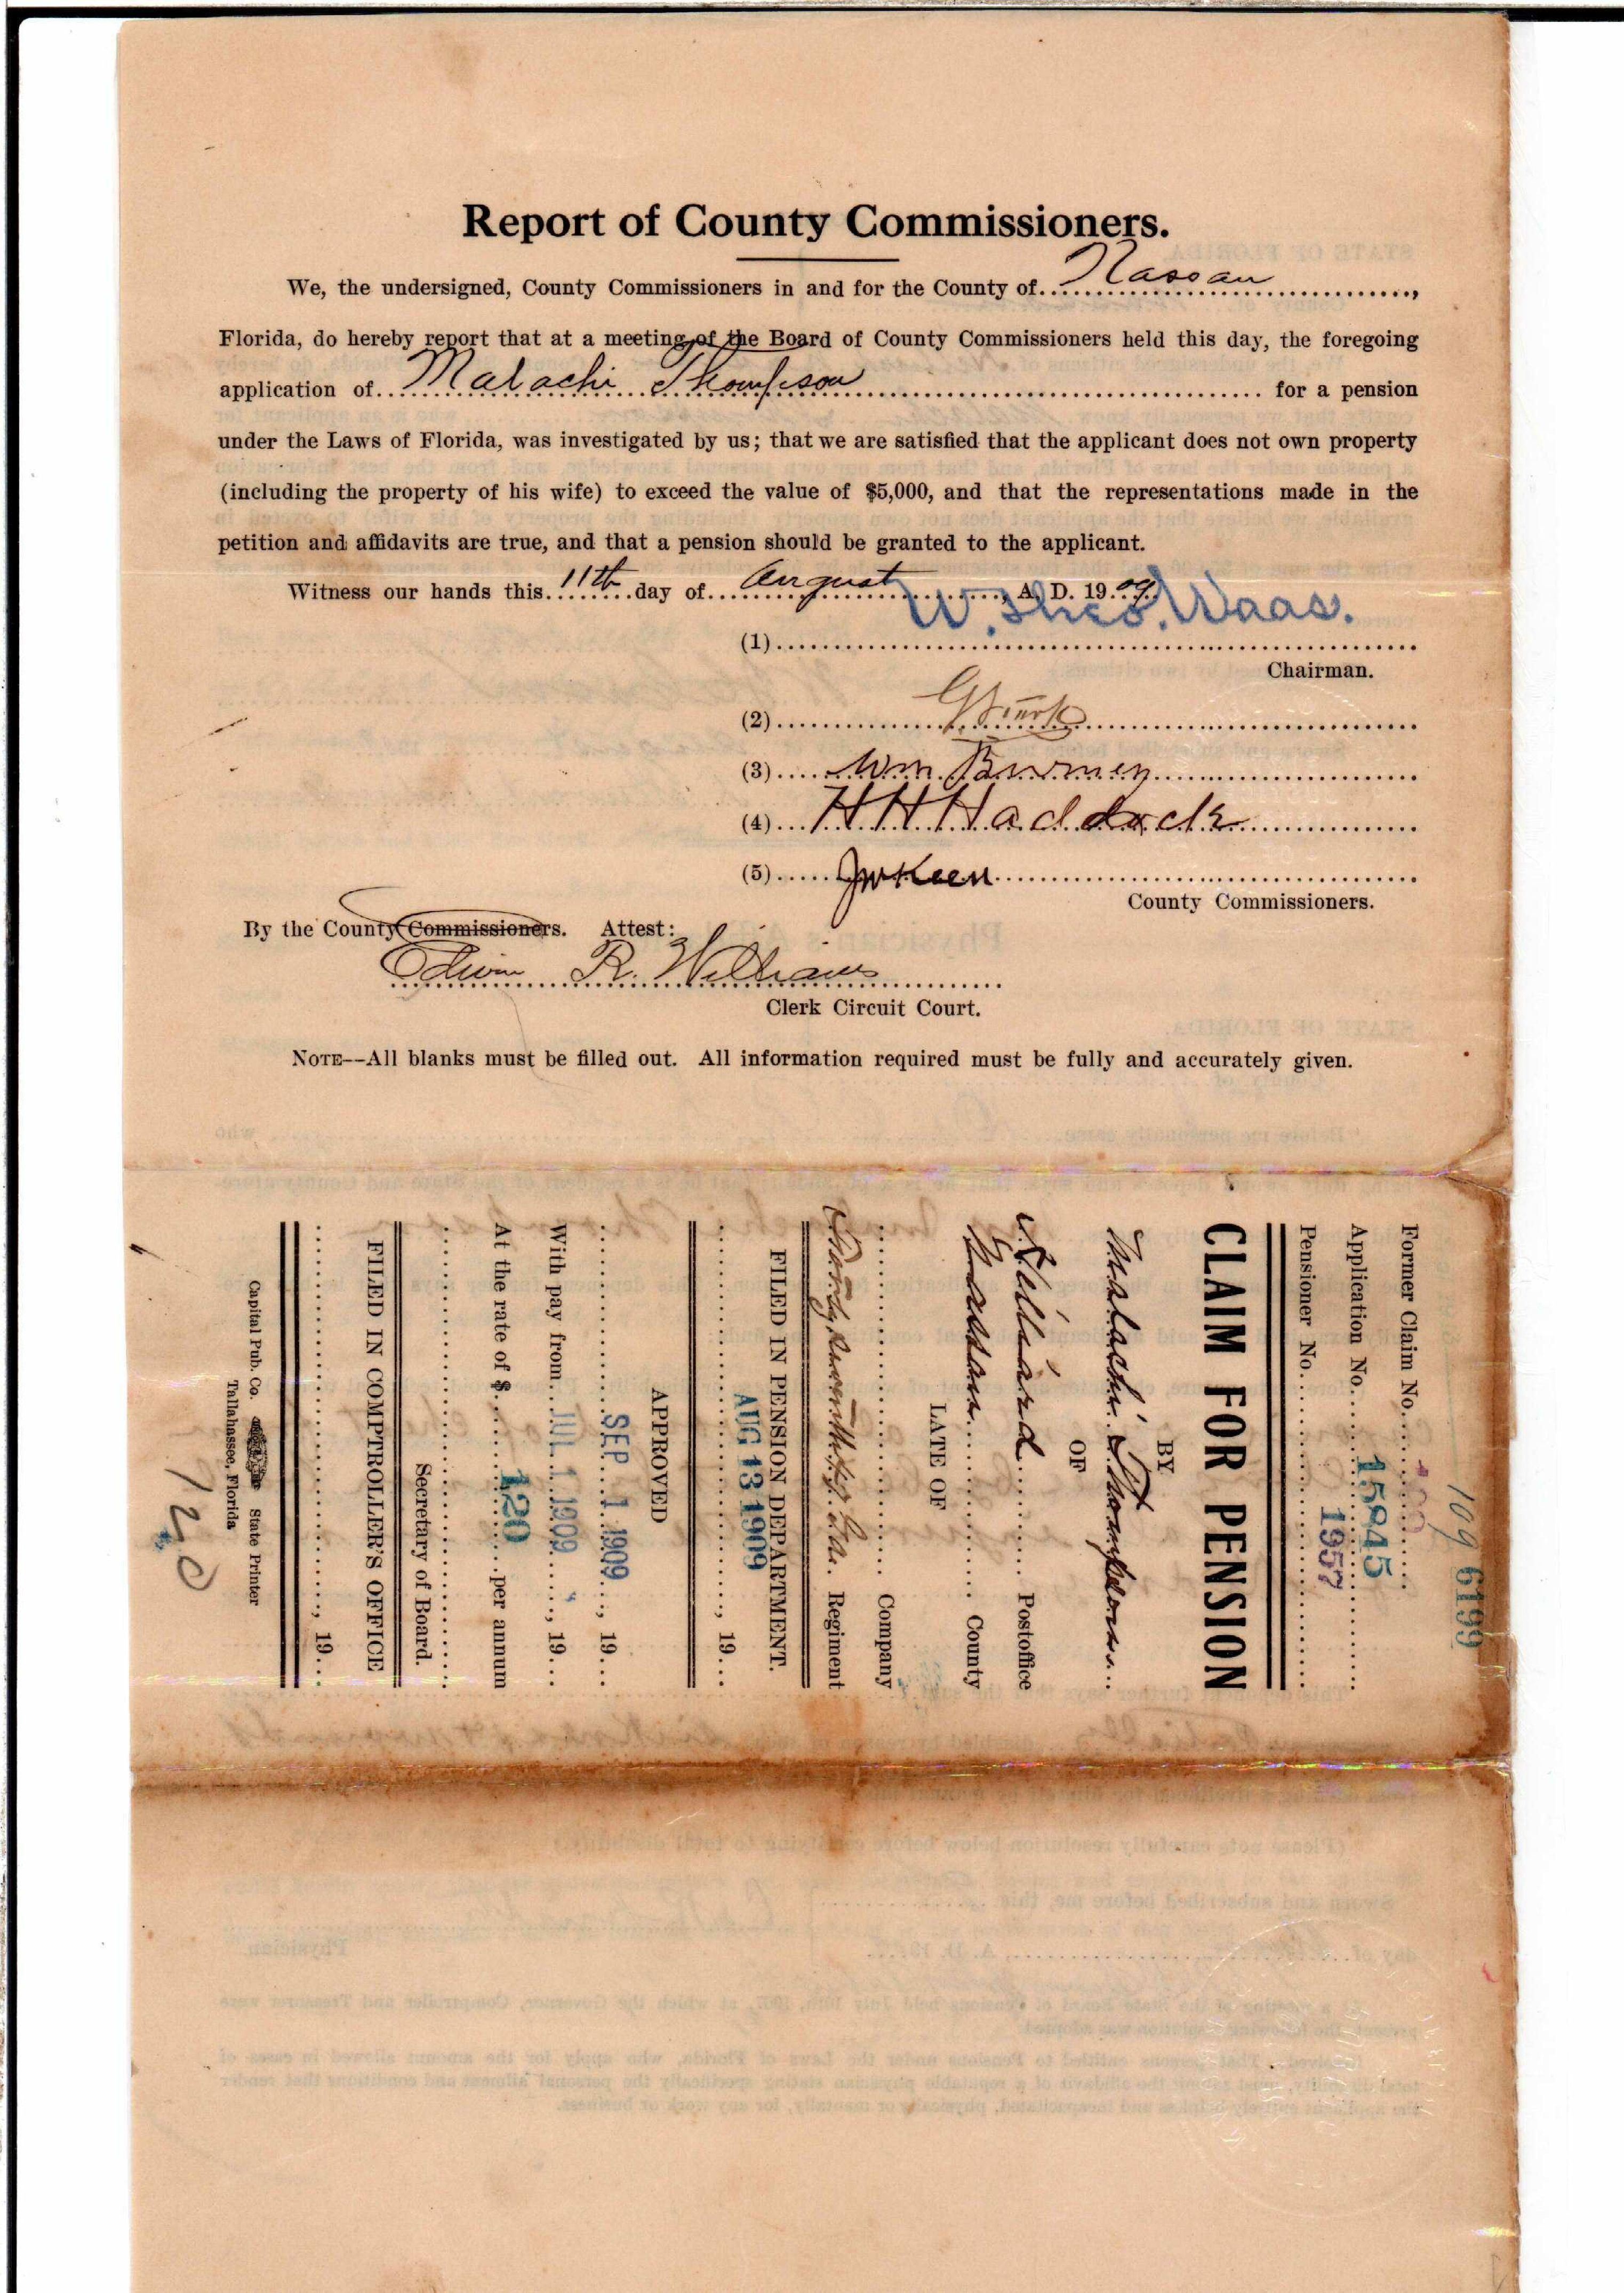 Report of County Commissioners.
We, the undersigned, County Commissioners in and for the County of Nassau,
Florida, do hereby report that at a meeting of the Board of County Commissioners held this day, the foregoing
application of Malachi Thompson for a pension
under the Laws of Florida, was investigated by us; that we are satisfied that the applicant does not own property
(including the property of his wife) to exceed the value of $5,000, and that the representations made in the
petition and affidavits are true, and that a pension should be granted to the applicant.
Witness our hands this 11th day of August, A. D. 1909
(1) W. Theo. Waas.
Chairman.
(2)
(3) Wm. Burney
(4) H H Haddock
(5) JW Keen
County Commissioners.
By the County Commissioners. Attest:
Edwin R. Williams
Clerk Circuit Court.
NOTE--All blanks must be filled out. All information required must be fully and accurately given.
109 6199
Former Claim No.
Application No. 15845
Pensioner No. 1957
CLAIM FOR PENSION
BY
Malachi Thompson
OF
Hilliard Postoffice
Nassau County
LATE OF
Company
Ga. Regiment
FILED IN PENSION DEPARTMENT.
AUG 13 1909, 19
APPROVED
SEP 1 1909, 19
With pay from JUL 1 1909, 19
At the rate of $ 120 per annum
Secretary of Board.
FILED IN COMPTROLLER'S OFFICE
, 19
Capital Pub. Co. State Printer
Tallahassee, Florida
120